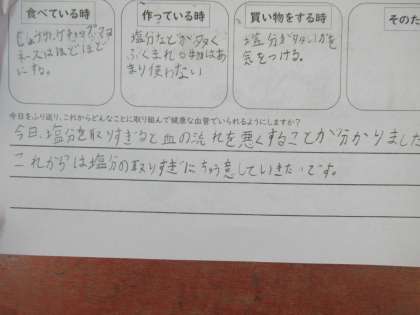 食べている時
しょうゆ、ケチャップ、マヨ
ネーズはほどほど
にする。
作っている時
塩分などが多く
ふくまれる物はあ
まり使わない
買い物をする時
塩分が多いかを
気をつける。
そのた
今日をふり返り、これからどんなことに取り組んで健康な血管でいられるようにしますか?
今日、塩分を取りすぎると血の流れを悪くすることが分かりました
これからは塩分の取りすぎにちゅう意していきたいです。